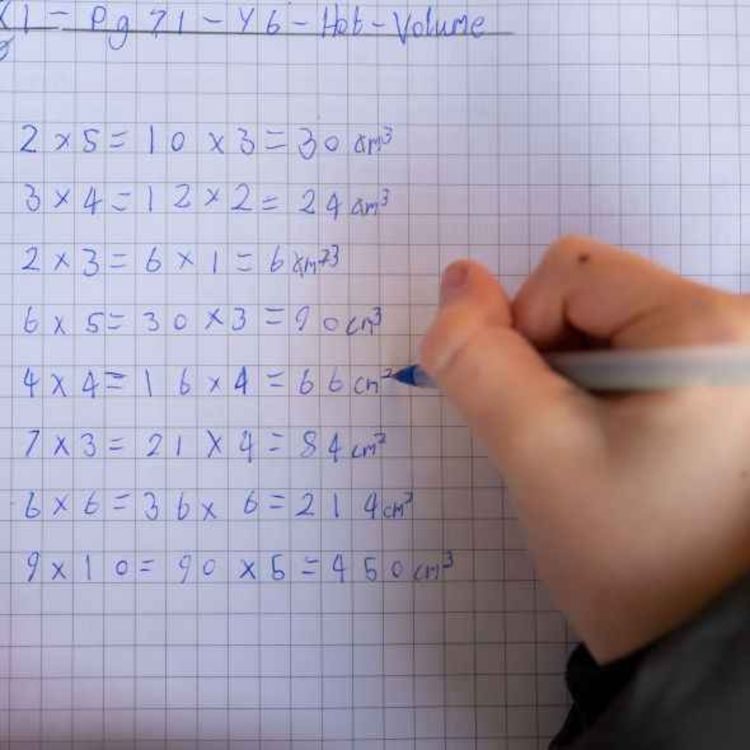 X1 - Pg 71 - Y6 - Hot - Volume
2 x 5 = 10 x 3 = 30 cm³
3 x 4 = 12 x 2 = 24 cm³
2 x 3 = 6 x 1 = 6 cm³
6 x 5 = 30 x 3 = 90 cm³
4 x 4 = 16 x 4 = 66 cm²
7 x 3 = 21 x 4 = 84 cm²
6 x 6 = 36 x 6 = 214 cm³
9 x 10 = 90 x 5 = 450 cm³